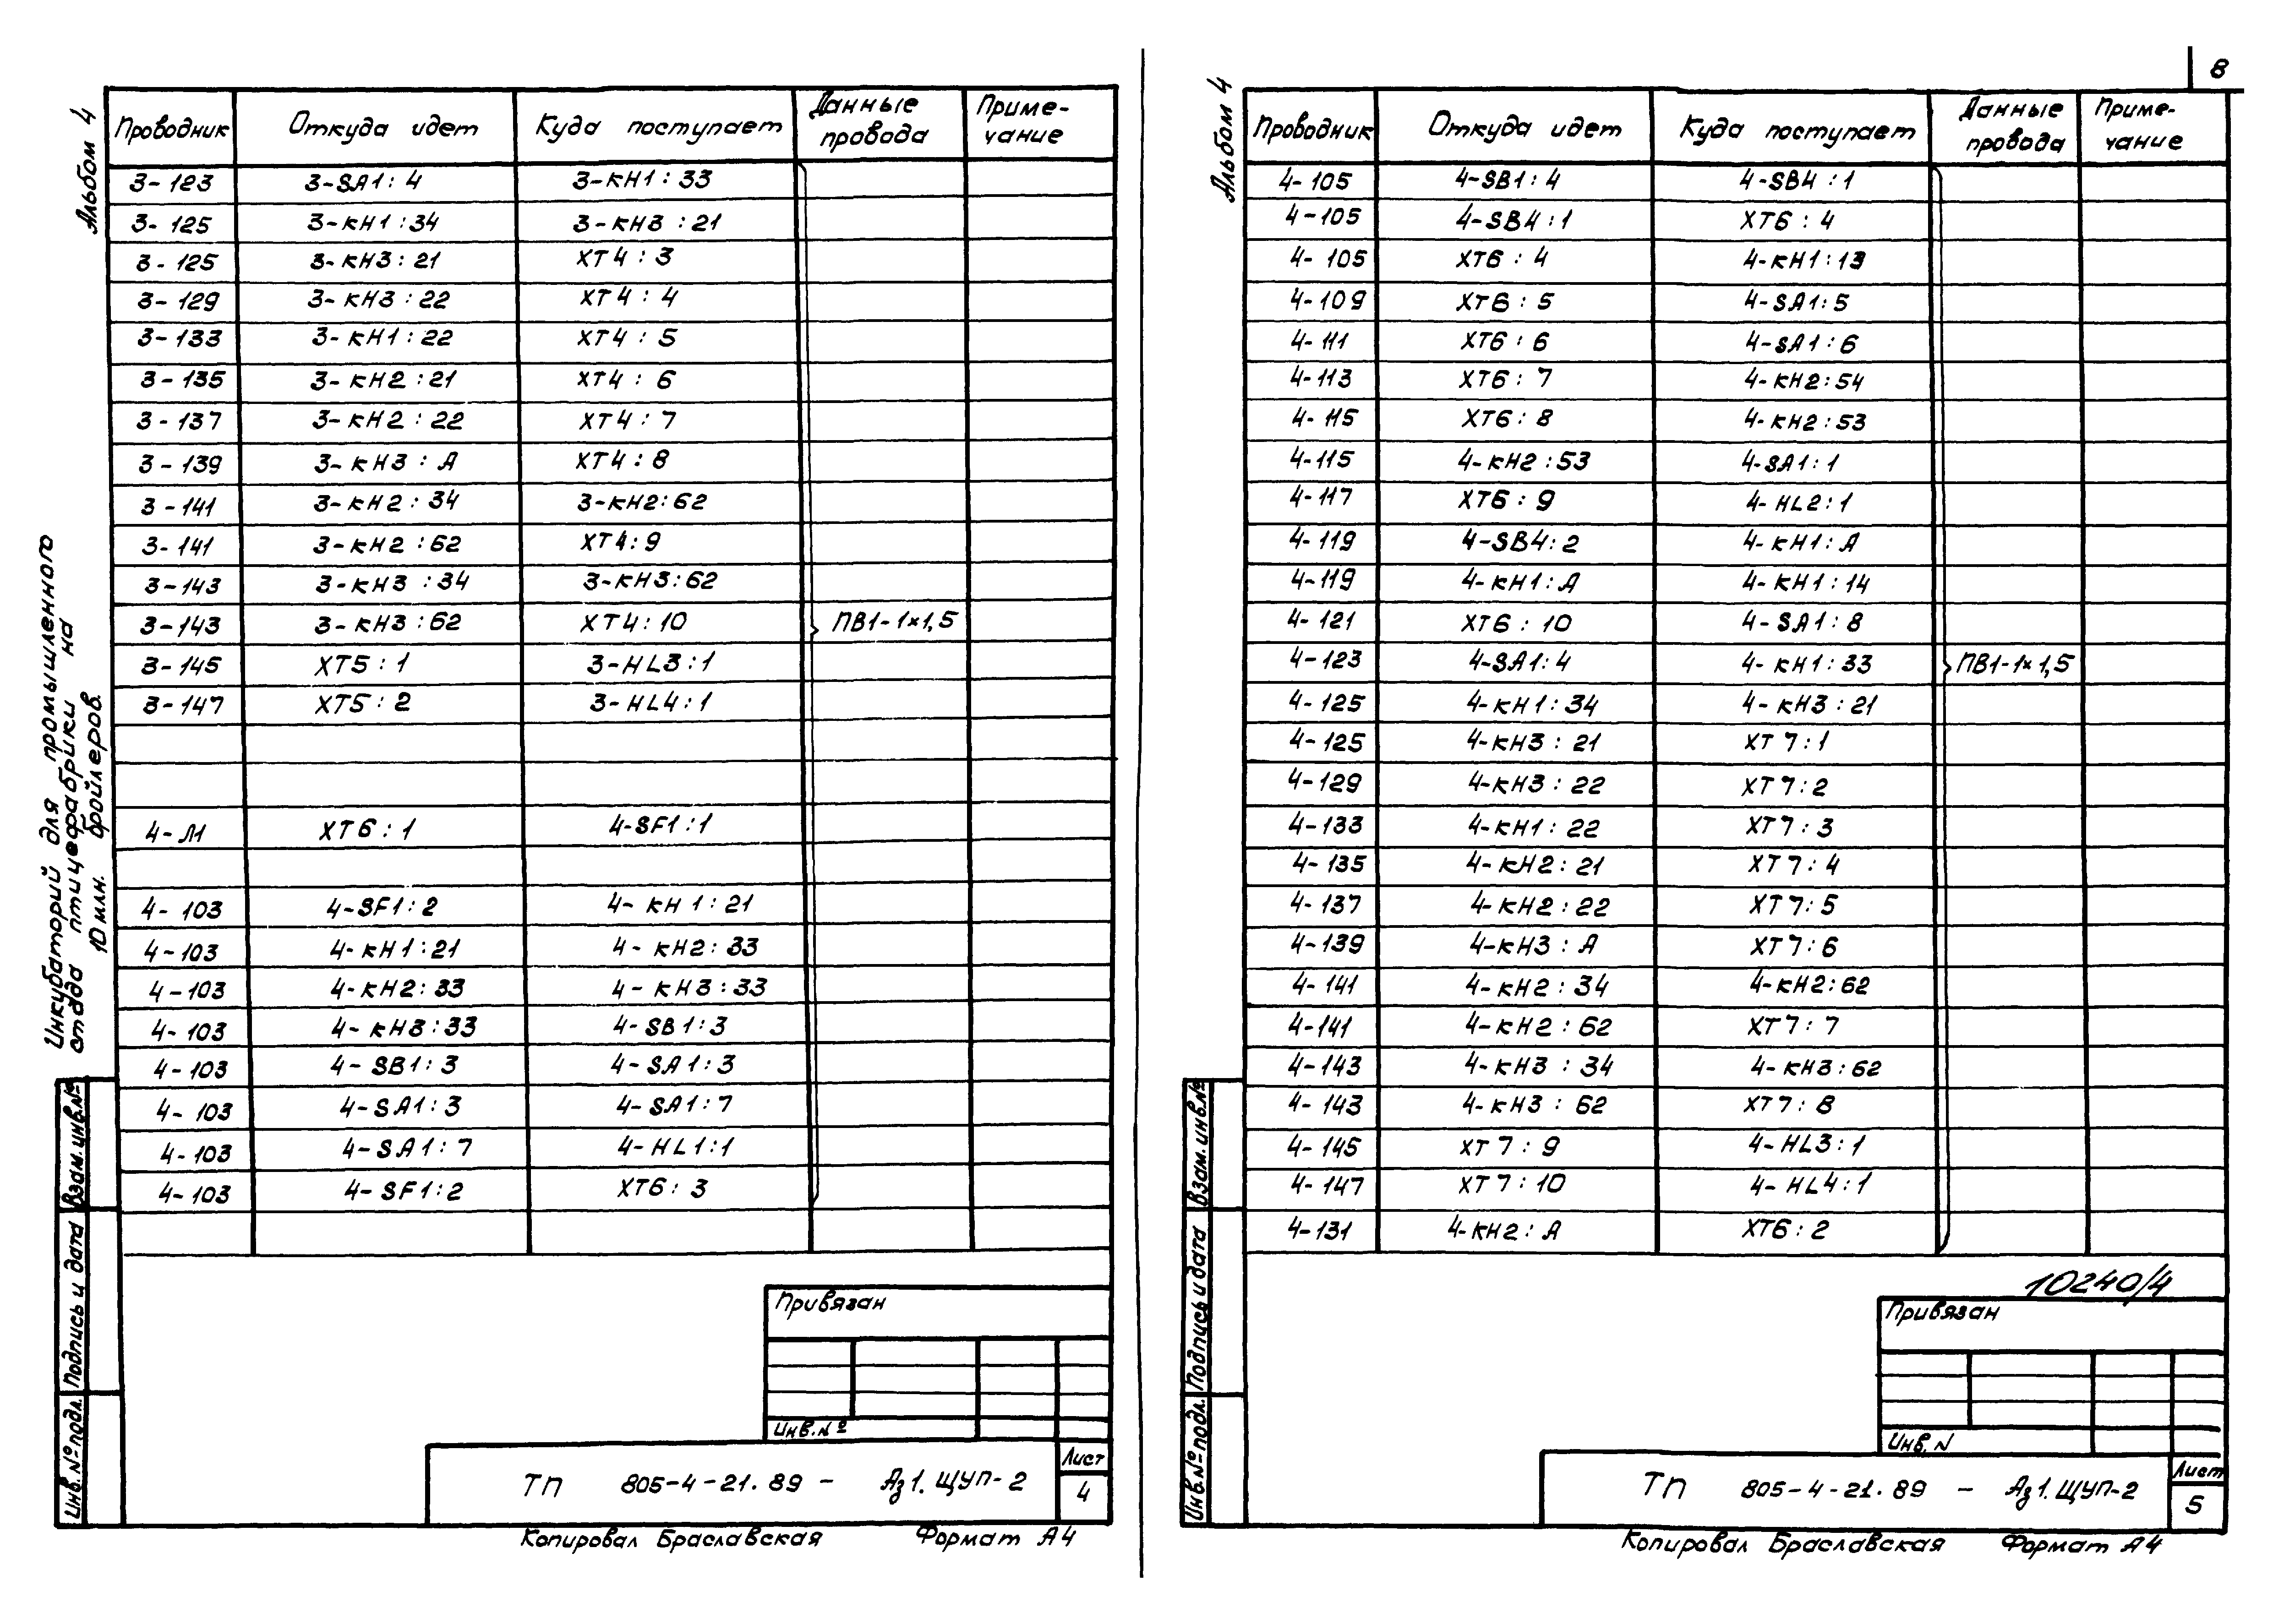 Альбом 4
Проводник Откуда идет Куда поступает Данные провода Приме-чание
3-123 3-SA1:4 3-КН1:33
3-125 3-КН1:34 3-КН3:21
3-125 3-КН3:21 ХТ4:3
3-129 3-КН3:22 ХТ4:4
3-133 3-КН1:22 ХТ4:5
3-135 3-КН2:21 ХТ4:6
3-137 3-КН2:22 ХТ4:7
3-139 3-КН3:А ХТ4:8
3-141 3-КН2:34 3-КН2:62
3-141 3-КН2:62 ХТ4:9
3-143 3-КН3:34 3-КН3:62
3-143 3-КН3:62 ХТ4:10 ПВ1-1×1,5
3-145 ХТ5:1 3-HL3:1
3-147 ХТ5:2 3-HL4:1
4-Л1 ХТ6:1 4-SF1:1
4-103 4-SF1:2 4-КН1:21
4-103 4-КН1:21 4-КН2:33
4-103 4-КН2:33 4-КН3:33
4-103 4-КН3:33 4-SB1:3
4-103 4-SB1:3 4-SA1:3
4-103 4-SA1:3 4-SA1:7
4-103 4-SA1:7 4-HL1:1
4-103 4-SF1:2 ХТ6:3
Инкубаторий для промышленного
стада птицефабрики на
10 млн. бройлеров.
Взам.инв.№
Подпись и дата
Инв.№ подл.
Привязан
Инв.№
ТП 805-4-21.89 - Аз1.ЩУП-2
Лист
4
Копировал Браславская Формат А4
8
Альбом 4
Проводник Откуда идет Куда поступает Данные провода Приме-чание
4-105 4-SB1:4 4-SB4:1
4-105 4-SB4:1 ХТ6:4
4-105 ХТ6:4 4-КН1:13
4-109 ХТ6:5 4-SA1:5
4-111 ХТ6:6 4-SA1:6
4-113 ХТ6:7 4-КН2:54
4-115 ХТ6:8 4-КН2:53
4-115 4-КН2:53 4-SA1:1
4-117 ХТ6:9 4-HL2:1
4-119 4-SB4:2 4-КН1:А
4-119 4-КН1:А 4-КН1:14
4-121 ХТ6:10 4-SA1:8
4-123 4-SA1:4 4-КН1:33 ПВ1-1×1,5
4-125 4-КН1:34 4-КН3:21
4-125 4-КН3:21 ХТ7:1
4-129 4-КН3:22 ХТ7:2
4-133 4-КН1:22 ХТ7:3
4-135 4-КН2:21 ХТ7:4
4-137 4-КН2:22 ХТ7:5
4-139 4-КН3:А ХТ7:6
4-141 4-КН2:34 4-КН2:62
4-141 4-КН2:62 ХТ7:7
4-143 4-КН3:34 4-КН3:62
4-143 4-КН3:62 ХТ7:8
4-145 ХТ7:9 4-HL3:1
4-147 ХТ7:10 4-HL4:1
4-131 4-КН2:А ХТ6:2
Взам.инв.№
Подпись и дата
Инв.№ подл.
10240/4
Привязан
Инв.N
ТП 805-4-21.89 - Аз1.ЩУП-2
Лист
5
Копировал Браславская Формат А4